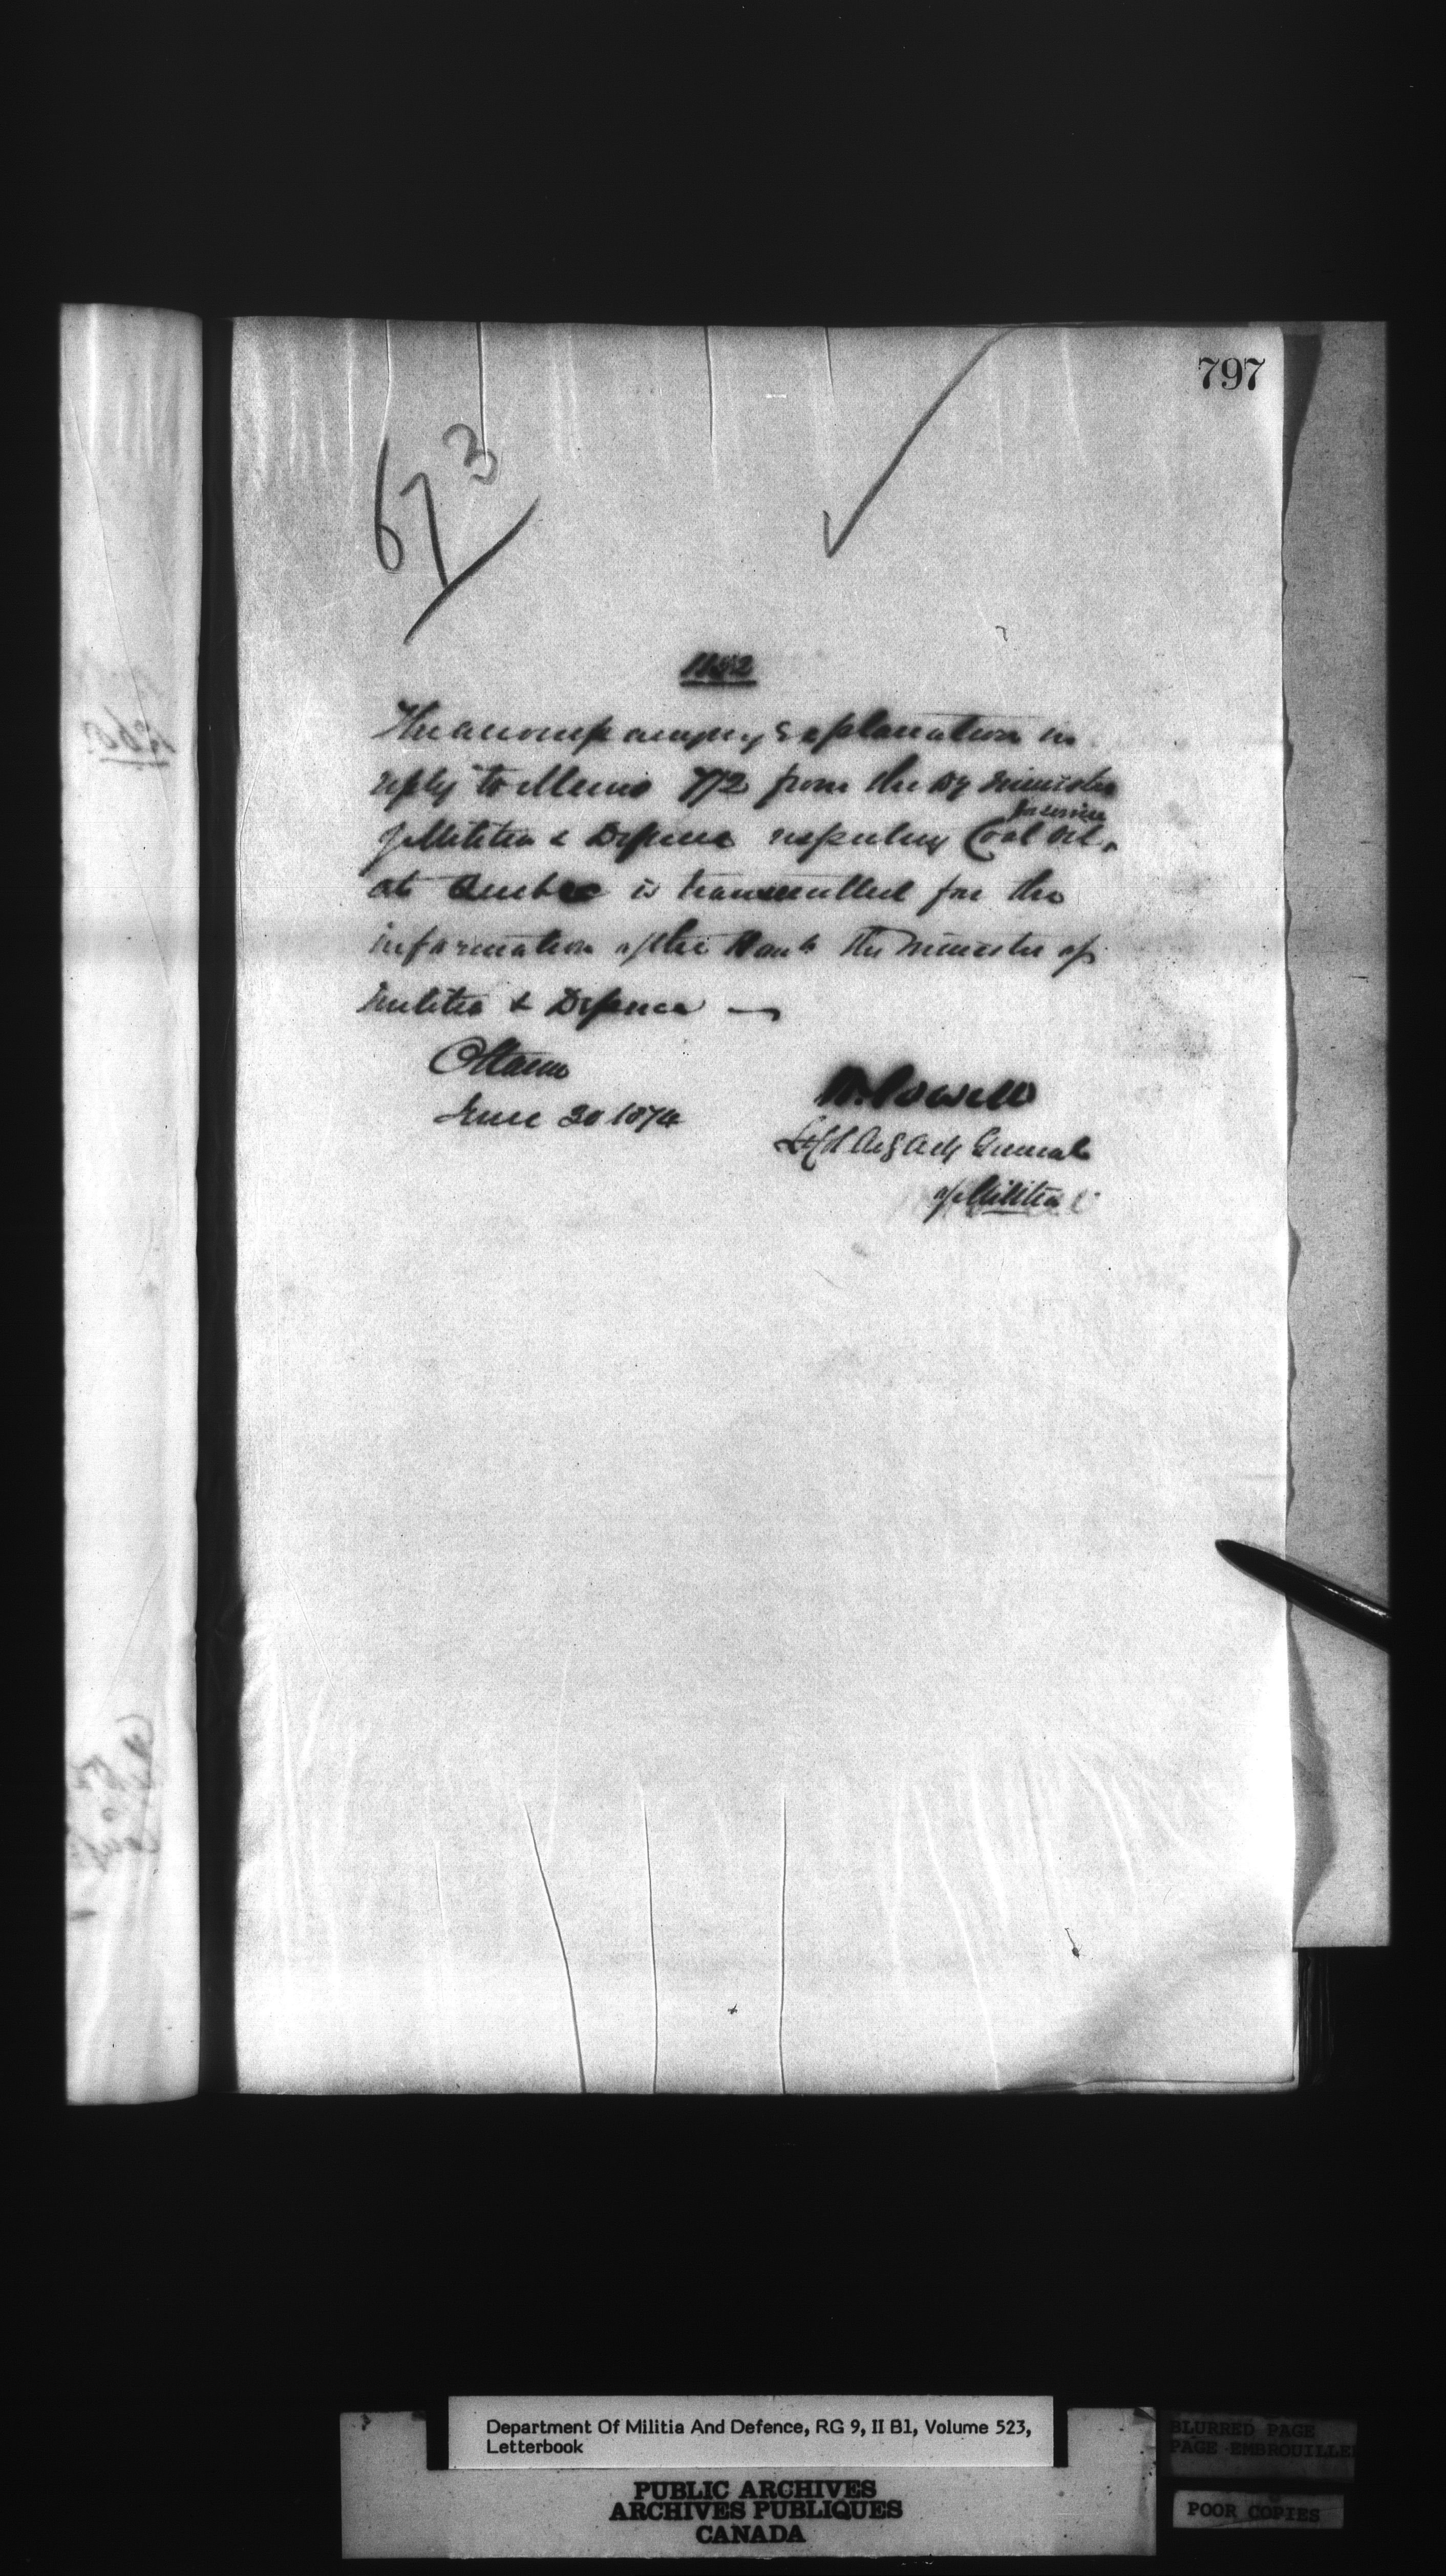 797
673
1152
The accompanying Explanation in
reply to Memo 772 from the Dy Minister
of Militia & Defence respecting Coal Oil
at Quebec is transmitted for the
information of the Honble the Minister of
Militia & Defence —
Ottawa
June 20 1874
W. Powell
Lt Col Actg Adjt General
of Militia
Department Of Militia And Defence, RG 9, II B1, Volume 523,
Letterbook
PUBLIC ARCHIVES
ARCHIVES PUBLIQUES
CANADA
BLURRED PAGE
PAGE EMBROUILLEE
POOR COPIES